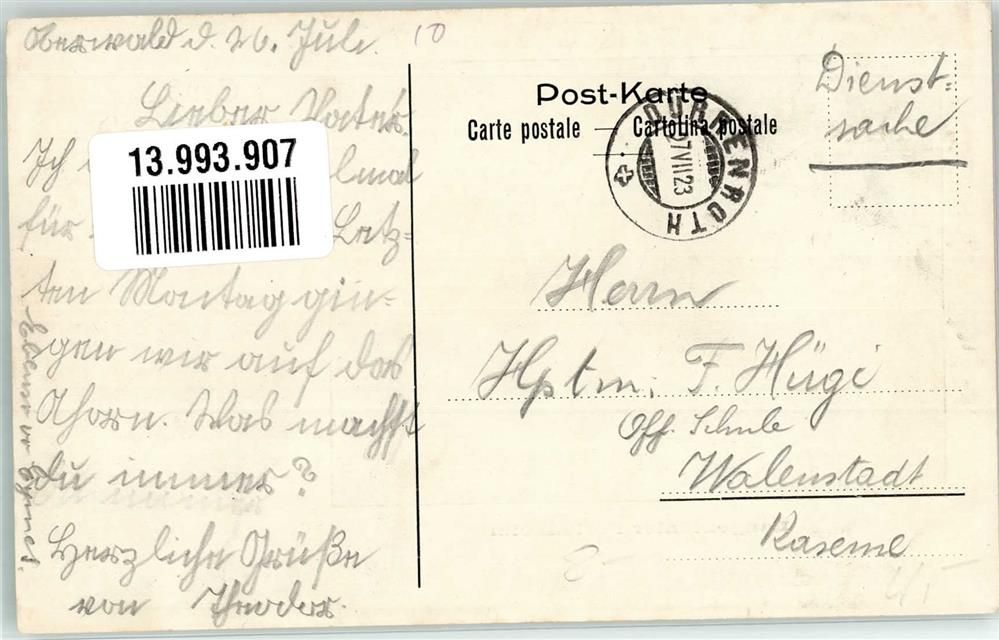 Oberwald d. 26. Juli.
10
Lieber Vater.
Ich
lmal
für
Letz=
ten Montag gin-
gen wir auf das
Ahorn. Was machst
du immer?
Herzliche Grüße
von Theodor.
13.993.907
Post-Karte
Carte postale — Cartolina postale
DÜRRENROTH
7 VII 23
Dienst=
sache
Herrn
Hptm. F. Hügi
Off. Schule
Walenstadt
Kaserne